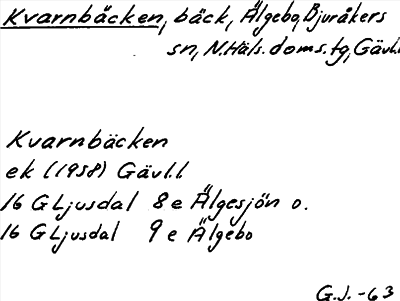 Kvarnbäcken, bäck, Älgebo, Bjuråkers
sn, N. Häls. doms. tg, Gävl.l
Kvarnbäcken
ek (1958) Gävl.l
16 G Ljusdal 8 e Älgesjön o.
16 G Ljusdal 9 e Älgebo
G.J. -63